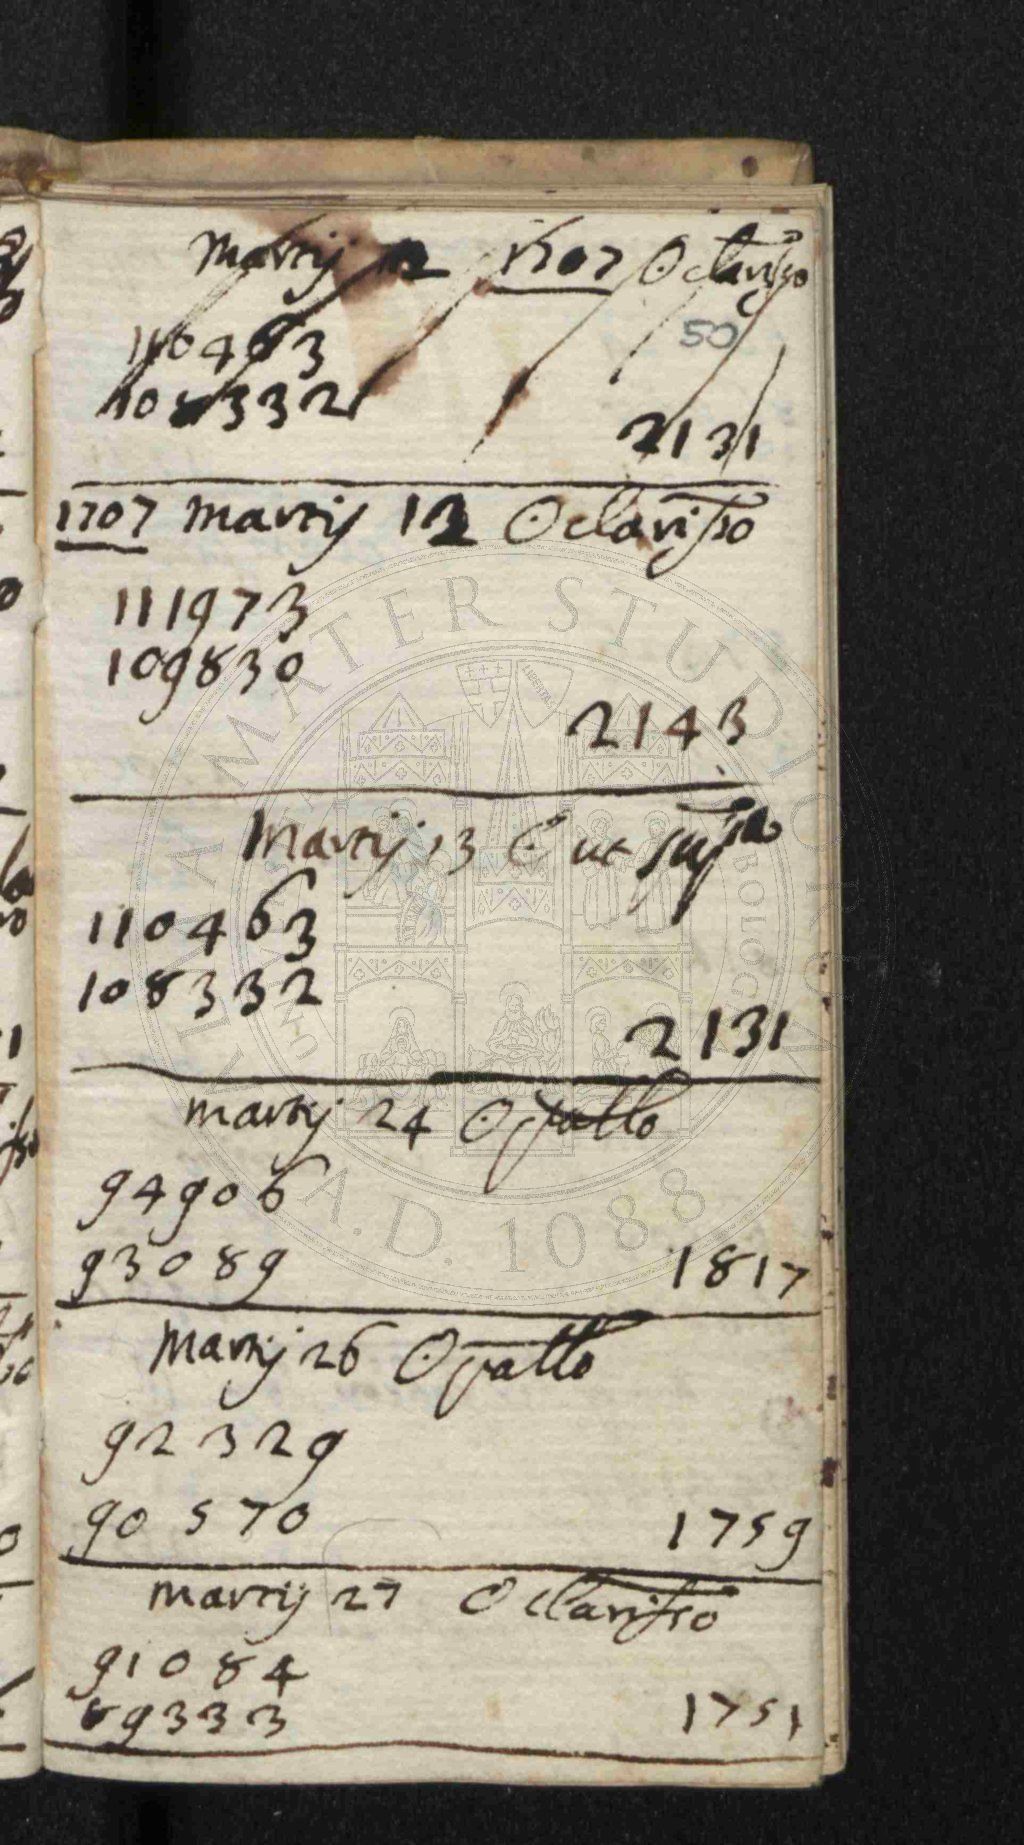 Martij 12 1707 ☉ clariſso
50
110463
108332
2131
1707 Martij 12 ☉ clariſso
111973
109830
2143
Martij 13 ☉ ut supra
110463
108332
2131
Martij 24 ☉ pallo
94906
93089 1817
Martij 26 ☉ pallo
92329
90570 1759
Martij 27 ☉ clariſso
91084
89333 1751
ALMA MATER STUDIORUM
A.D. 1088